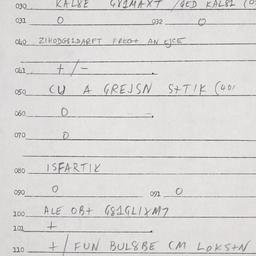 030 KALZE G81MAXT /GED KAL81 (0
031 0 032 0
040 ZIHODG81DARFT FRKO+ AN EJCE
041 +/-
050 CU A GREJSN S+TIK (401
060 0
070 0
080 ISFARTIK
090 0 091 0
100 ALE OB+ G81GLIXM7
101 +
110 +/ FUN BUL8BE CM LOKS+N